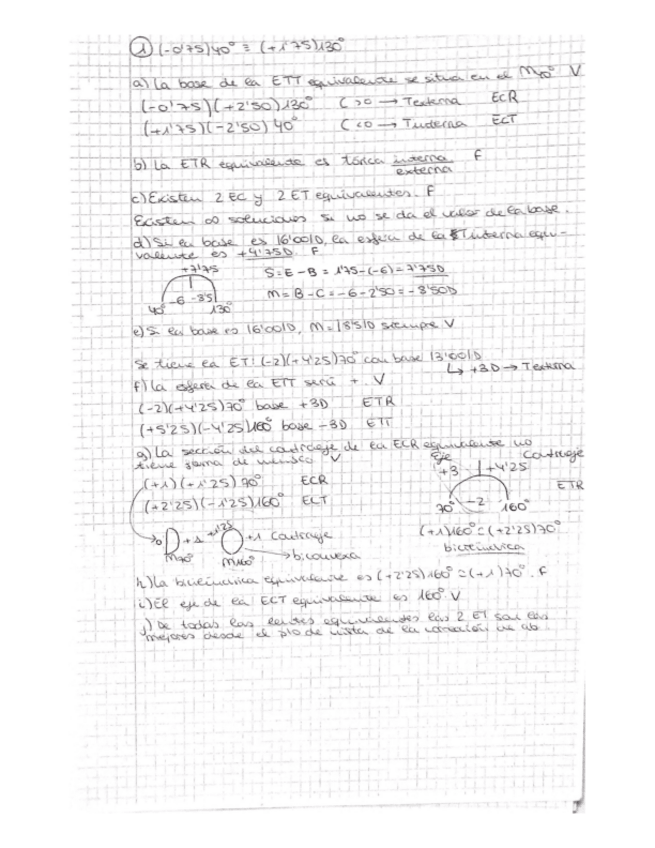 1) (-0'75)40° ≡ (+1'75)130°
a) La base de la ETT equivalente se situa en el M40° V
(-0'75)(+2'50)130° C>0 → Texterna ECR
(+1'75)(-2'50)40° C<0 → Tinterna ECT
b) La ETR equivalente es tórica interna F
externa
c) Existen 2 EC y 2 ET equivalentes. F
Existen ∞ soluciones si no se da el valor de la base.
d) Si la base es |6'00|D, la esfera de la ST interna equi-
valente es +4'75D. F
+7'75
S=E-B = 1'75-(-6) = 7'75D
40° -6 -8'5 130°
M=B-C=-6-2'50=-8'50D
e) Si la base es |6'00|D, M=|8'5|D siempre V
Se tiene la ET: (-2)(+4'25)70° con base |3'00|D
↳ +3D → Texterna
f) La esfera de la ETT será + V
(-2)(+4'25)70° base +3D ETR
(+5'25)(-4'25)160° base -3D ETT
g) La sección del contraeje de la ECR equivalente no
tiene forma de menisco V
Eje Contraeje
+3 +4'25
(+1)(+1'25)70° ECR
ETR
(+2'25)(-1'25)160° ECT
70° -2 160°
0 +1 +1'25 +1 Contraeje
(+1)160°=(+2'25)70°
M70° M160° → biconvexa
bicilíndrica
h) La bicilíndrica equivalente es (+2'25)160°=(+1)70°. F
i) El eje de la ECT equivalente es 160°. V
j) De todas las lentes equivalentes las 2 ET son las
mejores desde el pto de vista de la corrección de ab.